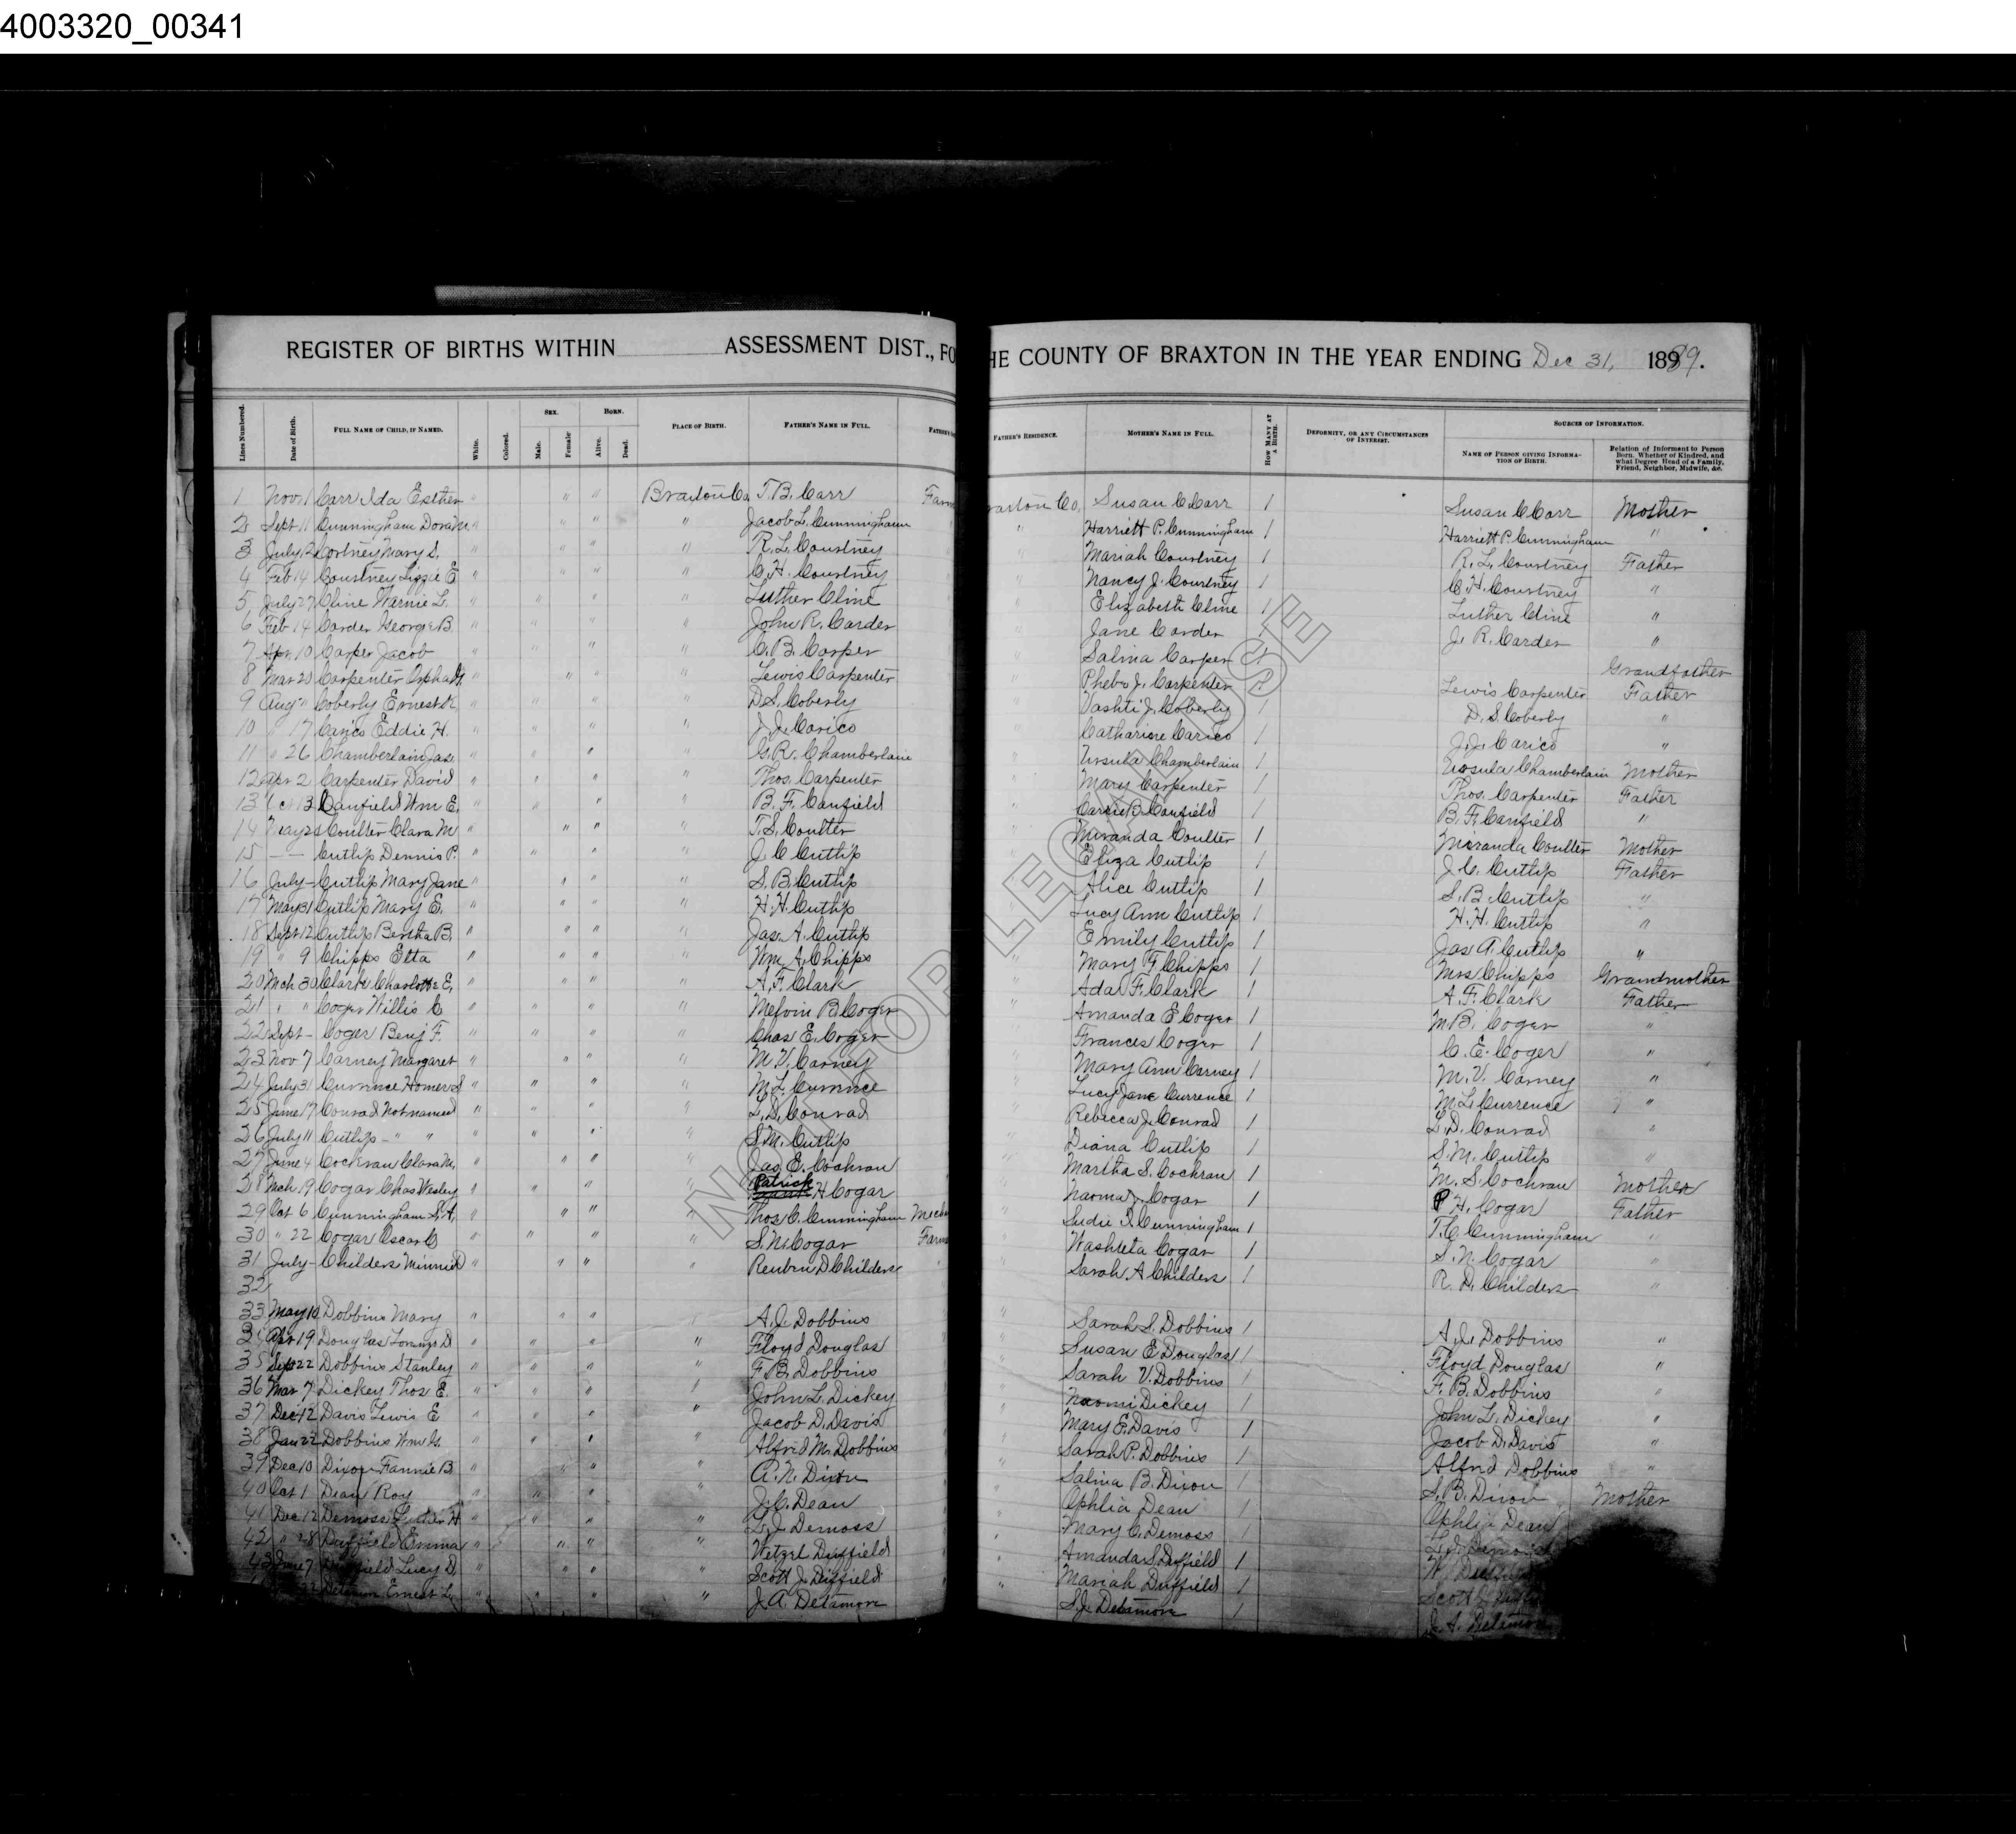 4003320_00341
REGISTER OF BIRTHS WITHIN ASSESSMENT DIST., FO HE COUNTY OF BRAXTON IN THE YEAR ENDING Dec 31, 1889.
Lines Numbered. Date of Birth. FULL NAME OF CHILD, IF NAMED. White. Colored. SEX. Male. Female. BORN. Alive. Dead. PLACE OF BIRTH. FATHER'S NAME IN FULL. FATHER'S RESIDENCE. MOTHER'S NAME IN FULL. HOW MANY AT A BIRTH. DEFORMITY, OR ANY CIRCUMSTANCES OF INTEREST. SOURCES OF INFORMATION. NAME OF PERSON GIVING INFORMATION OF BIRTH. Relation of Informant to Person Born. Whether of Kindred, and what Degree Head of a Family, Friend, Neighbor, Midwife, &c.
1 Nov. 1 Carr Ida Esther " " " Braxton Co T. B. Carr Farm raxton Co, Susan C Carr 1 Susan C Carr Mother
2 Sept 11 Cunningham Dora M. " " " " Jacob L. Cunningham " Harriett P. Cunningham 1 Harriett P. Cunningham "
3 July 12 Cortney Mary S. " " " " R. L. Courtney Mariah Courtney 1 R. L. Courtney Father
4 Feb 14 Courtney Lizzie E " " " " C. H. Courtney " Nancy J. Courtney 1 C. H. Courtney "
5 July 27 Cline Warnie L. " " " " Luther Cline " Elizabeth Cline 1 Luther Cline "
6 Feb 14 Carder George B. " " " " John R. Carder " Jane Carder 1 J. R. Carder "
7 Apr. 10 Carper Jacob " " " " C. B. Carper " Salina Carper 1
8 Mar 20 Carpenter Orpha " " " " Lewis Carpenter " Phebe J. Carpenter 1 Lewis Carpenter Grandfather
9 Aug " Coberly Ernest " " " " D. S. Coberly " Vashti J. Coberly 1 D. S. Coberly Father
10 " 17 Carico Eddie H. " " " " J. J. Carico " Catharine Carico 1 J. J. Carico "
11 " 26 Chamberlain Jas. " " " " G. R. Chamberlain " Ursula Chamberlain 1 Ursula Chamberlain Mother
12 Apr 2 Carpenter David " " " " Thos. Carpenter " Mary Carpenter 1 Thos. Carpenter Father
13 Oct 13 Canfield Wm E. " " " " B. F. Canfield " Carrie B. Canfield 1 B. F. Canfield "
14 May 24 Coulter Clara M " " " " T. S. Coulter " Miranda Coulter 1 Miranda Coulter Mother
15 — — Cutlip Dennis P. " " " " J. C Cutlip " Eliza Cutlip 1 J. C. Cutlip Father
16 July - Cutlip Mary Jane " " " " S. B. Cutlip " Alice Cutlip 1 S. B. Cutlip "
17 May 31 Cutlip Mary E. " " " " H. H. Cutlip " Lucy Ann Cutlip 1 H. H. Cutlip "
18 Sept 12 Cutlip Bertha B. " " " " Jas. A. Cutlip " Emily Cutlip 1 Jas A. Cutlip "
19 " 9 Chipps Etta " " " " Wm. A. Chipps " Mary F. Chipps 1 Mrs Chipps Grandmother
20 Mch 30 Clark Charlotte E. " " " " A. F. Clark " Ada F. Clark 1 A. F. Clark Father
21 " " Coger Willis C " " " " Melvin B. Coger " Amanda E Coger 1 M. B. Coger "
22 Sept - Coger Benj F. " " " " Chas E. Coger " Frances Coger 1 C. E. Coger "
23 Nov 7 Carney Margaret " " " " M. V. Carney " Mary Ann Carney 1 M. V. Carney "
24 July 31 Currence Homer S " " " " M. L. Currence " Lucy Jane Currence 1 M. L. Currence "
25 June 17 Conrad Not named " " " " L. D. Conrad " Rebecca J. Conrad 1 L. D. Conrad "
26 July 11 Cutlip - " " " " " " S. M. Cutlip " Diana Cutlip 1 S. M. Cutlip "
27 June 4 Cochran Clara M. " " " " Jas. E. Cochran " Martha S. Cochran 1 M. S. Cochran Mother
28 Mch 19 Cogar Chas Wesley " " " " Patrick H Cogar " Naoma J. Cogar 1 P H. Cogar Father
29 Oct 6 Cunningham S. A. " " " " Thos. C. Cunningham Mech " Sudie D. Cunningham 1 T. C. Cunningham "
30 " 22 Cogar Oscar C " " " " S. N. Cogar Farm " Washteta Cogar 1 S. N. Cogar "
31 July - Childers Minnie D " " " " Reuben D Childers " " Sarah A Childers 1 R. D. Childers "
32
33 May 10 Dobbins Mary " " " A. J. Dobbins Sarah S. Dobbins 1 A. J. Dobbins "
34 Apr 19 Douglas D " " " " Floyd Douglas " Susan E Douglas 1 Floyd Douglas "
35 Sept 22 Dobbins Stanley " " " " F. B. Dobbins " Sarah V. Dobbins 1 F. B. Dobbins "
36 Mar 7 Dickey Thos E. " " " " John L. Dickey " Naomi Dickey 1 John L. Dickey "
37 Dec 12 Davis Lewis E " " " " Jacob D. Davis " Mary E. Davis 1 Jacob D. Davis "
38 Jan 22 Dobbins Wm G. " " " " Alfred M. Dobbins " Sarah P. Dobbins 1 Alfred Dobbins "
39 Dec 10 Dixon Fannie B " " " " A. N. Dixon " Salina B. Dixon 1 S. B. Dixon Mother
40 Oct 1 Dean Roy " " " " J. C. Dean " Ophlia Dean 1 Ophlia Dean
41 Dec 12 Demoss H " " " " L. J. Demoss " Mary C. Demoss 1
42 " 28 Duffield Emma " " " " Wetzel Duffield " Amanda S. Duffield 1
43 June 7 Duffield Lucy D " " " " Scott J. Duffield " Mariah Duffield 1 Scott
22 Delamore Ernest L. " " " " J. A. Delamore " S. J. Delamore 1 J. A. Delamore
NOT FOR LEGAL USE